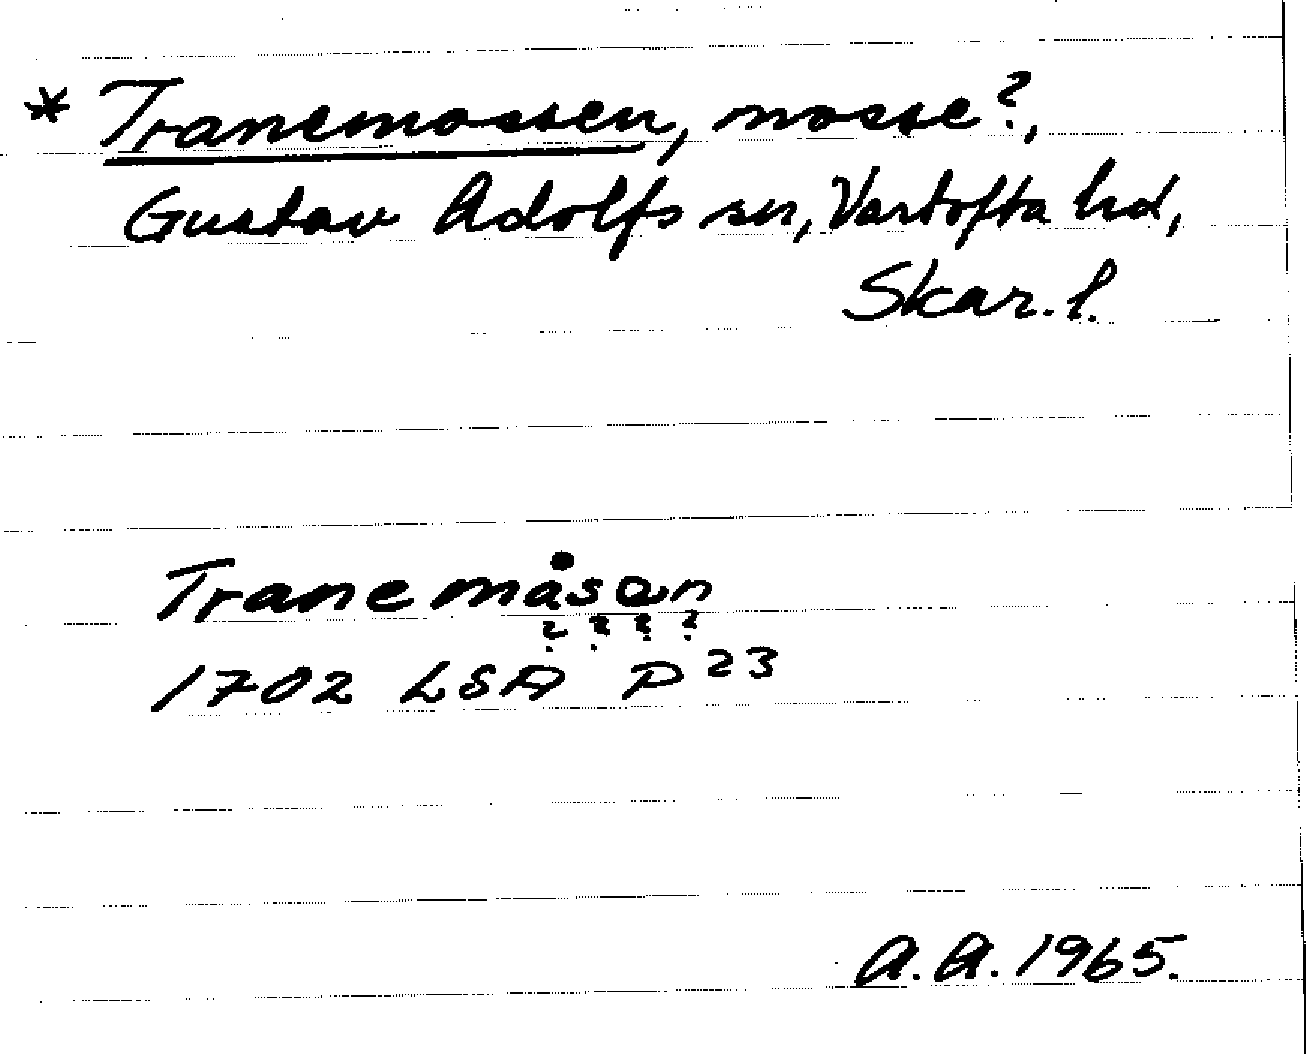 * Tranemossen, mosse?,
Gustav Adolfs sn, Vartofta hd,
Skar. l.
Tranemåsen
? ? ? ?
1702 LSA P 23
A.A. 1965.